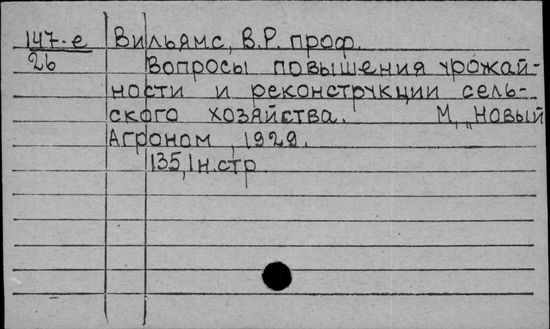 147-е Вильямс, В.Р. проф.
26 Вопросы повышения урожай-
ности и реконструкции сель-
ского хозяйства. М, „Новый
Агроном, 1929.
135, 1н.стр.